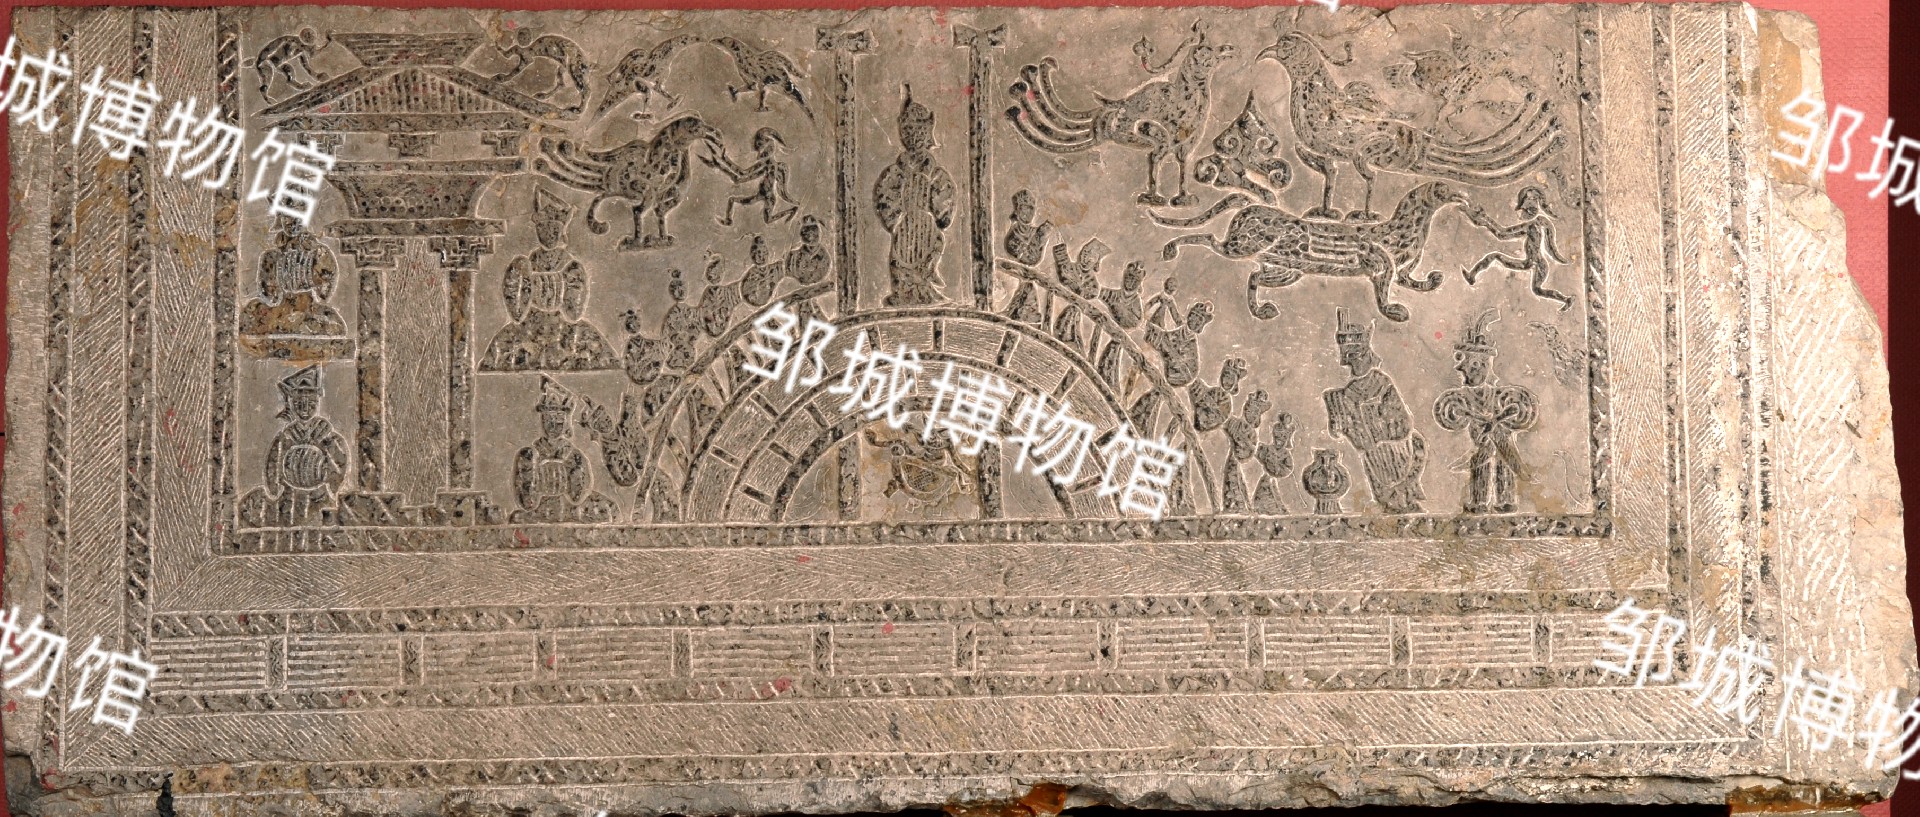 城博物馆
邹城
邹城博物馆
物馆
邹城博物